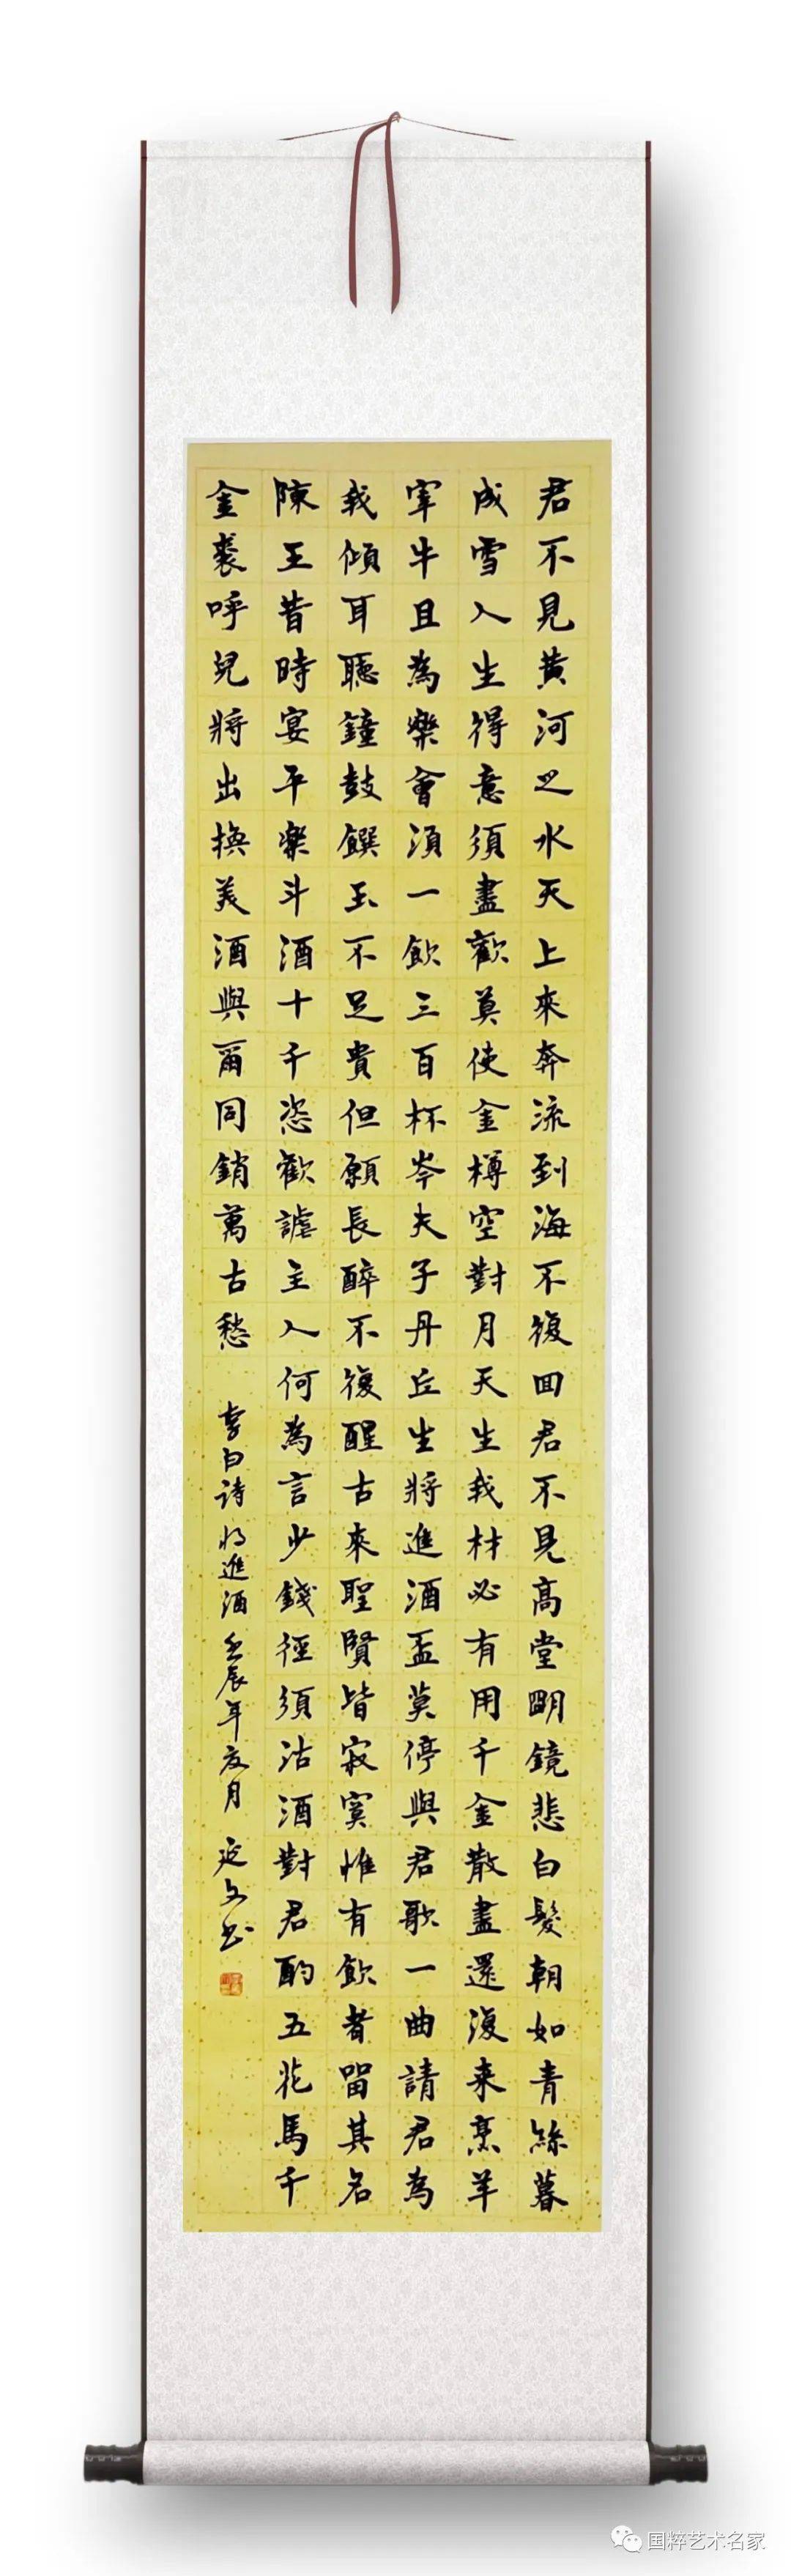 君不見黃河之水天上來奔流到海不復回君不見高堂明鏡悲白髮朝如青絲暮
成雪人生得意須盡歡莫使金樽空對月天生我材必有用千金散盡還復来烹羊
宰牛且為樂會須一飲三百杯岑夫子丹丘生將進酒盃莫停與君歌一曲請君為
我傾耳聽鐘鼓饌玉不足貴但願長醉不復醒古來聖賢皆寂寞惟有飲者留其名
陳王昔時宴平樂斗酒十千恣歡謔主人何為言少錢徑須沽酒對君酌五花馬千
金裘呼兒將出換美酒與爾同銷萬古愁 李白詩 將進酒 壬辰年夏月 延文书
国粹艺术名家